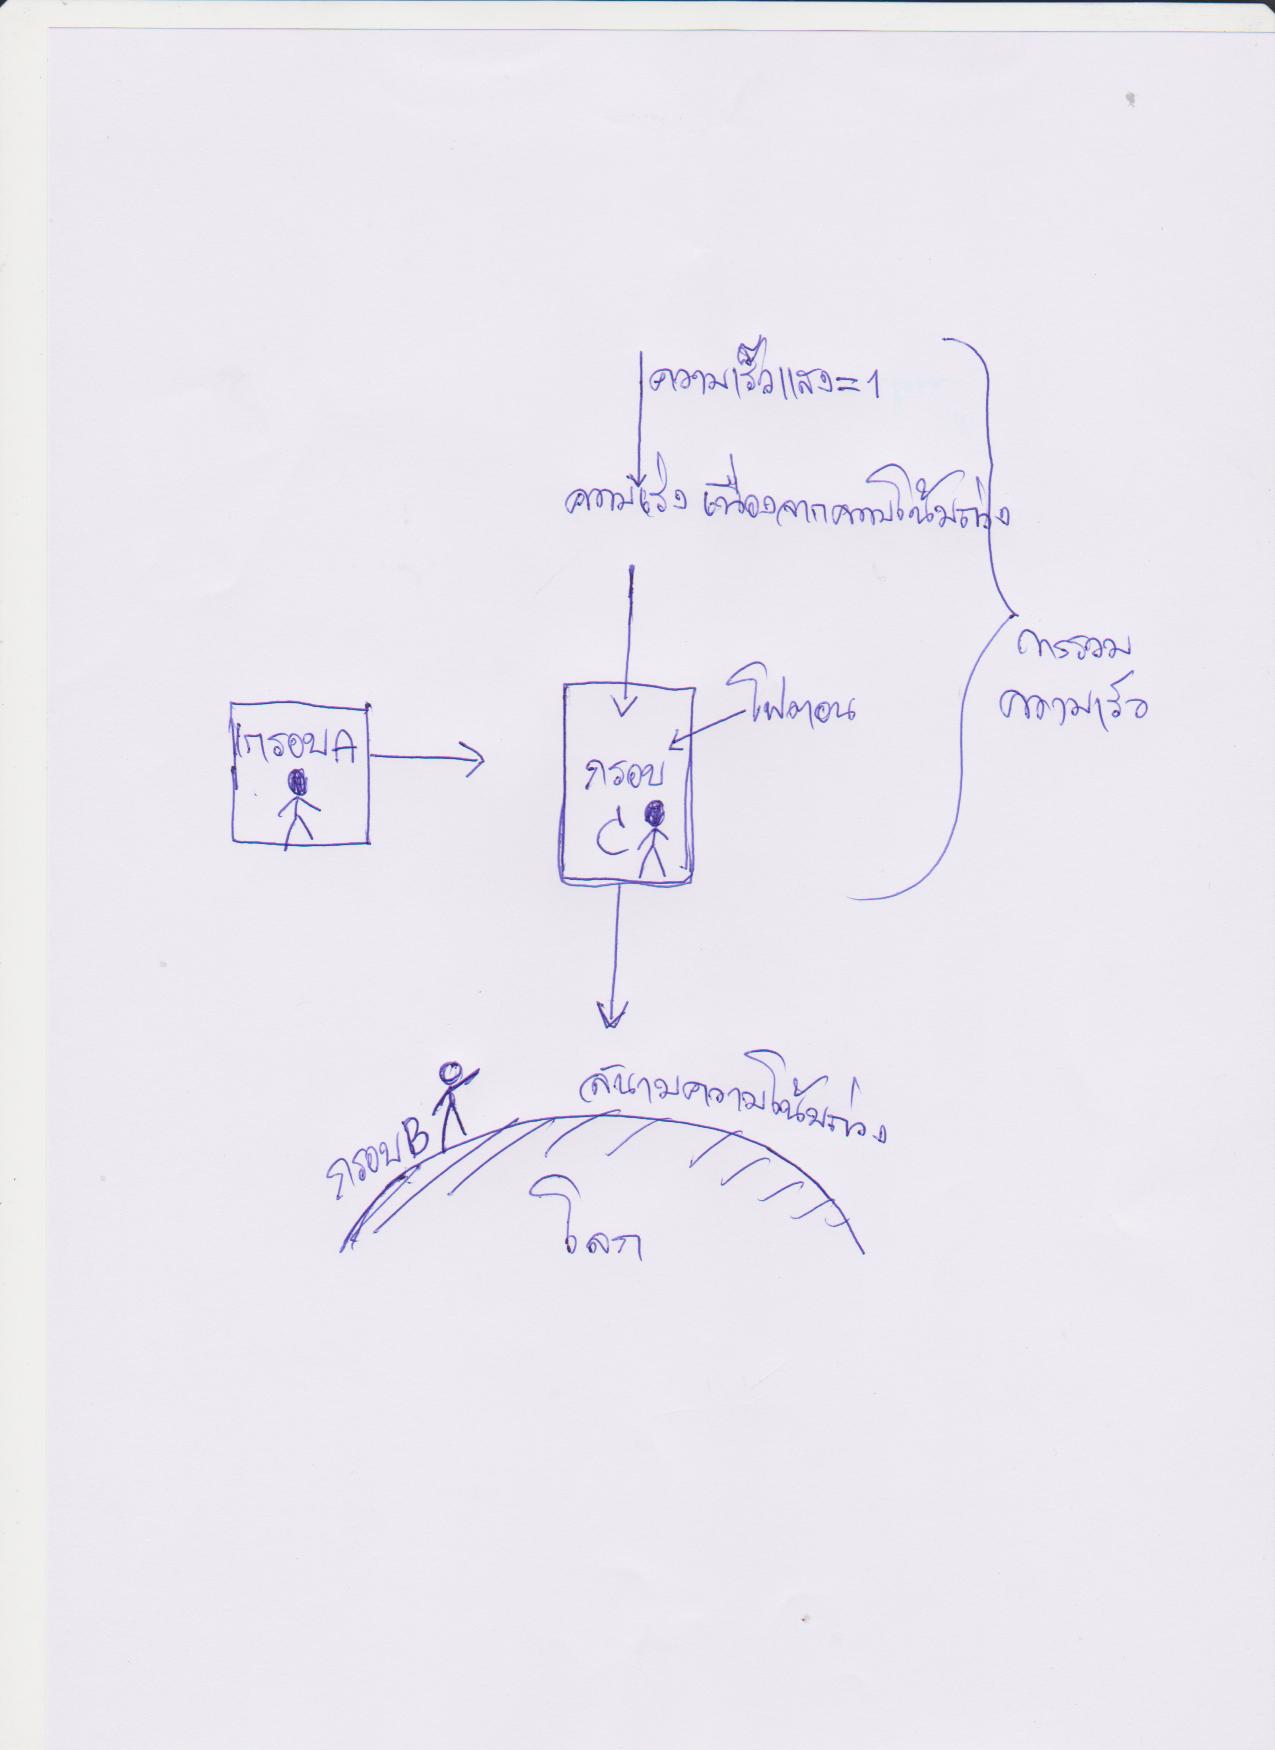 ความเร็วแสง=1
ความเร่ง เนื่องจากความโน้มถ่วง
การรวม
ความเร็ว
โฟตอน
กรอบA
กรอบ
C
สนามความโน้มถ่วง
กรอบB
โลก